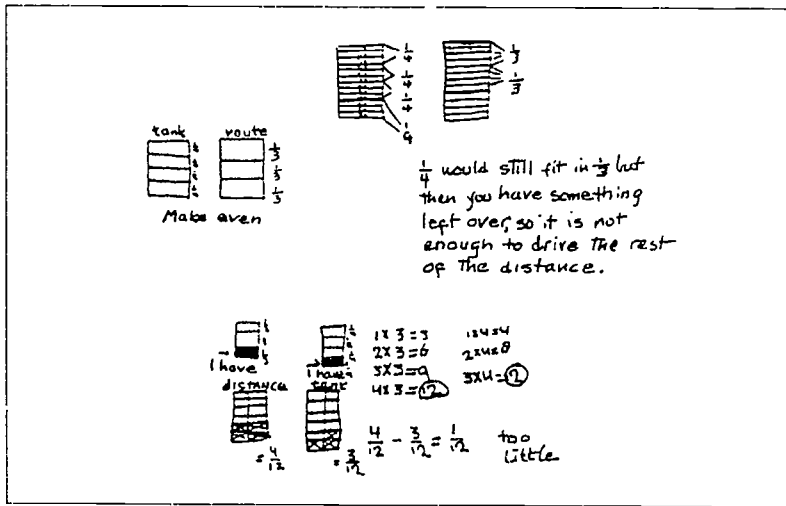 1/4
1/4
1/4
1/4
1/3
1/3
tank route
1/3
1/3
1/3
Make even
1/4 would still fit in 1/3 but
then you have something
left over, so it is not
enough to drive the rest
of the distance.
I have
I have
DISTANCE
tank
1 x 3 = 3
2 x 3 = 6
3 x 3 = 9
4 x 3 = 12
1x4=4
2x4=8
3x4=12
= 4/12
= 3/12
4/12 - 3/12 = 1/12
too
little